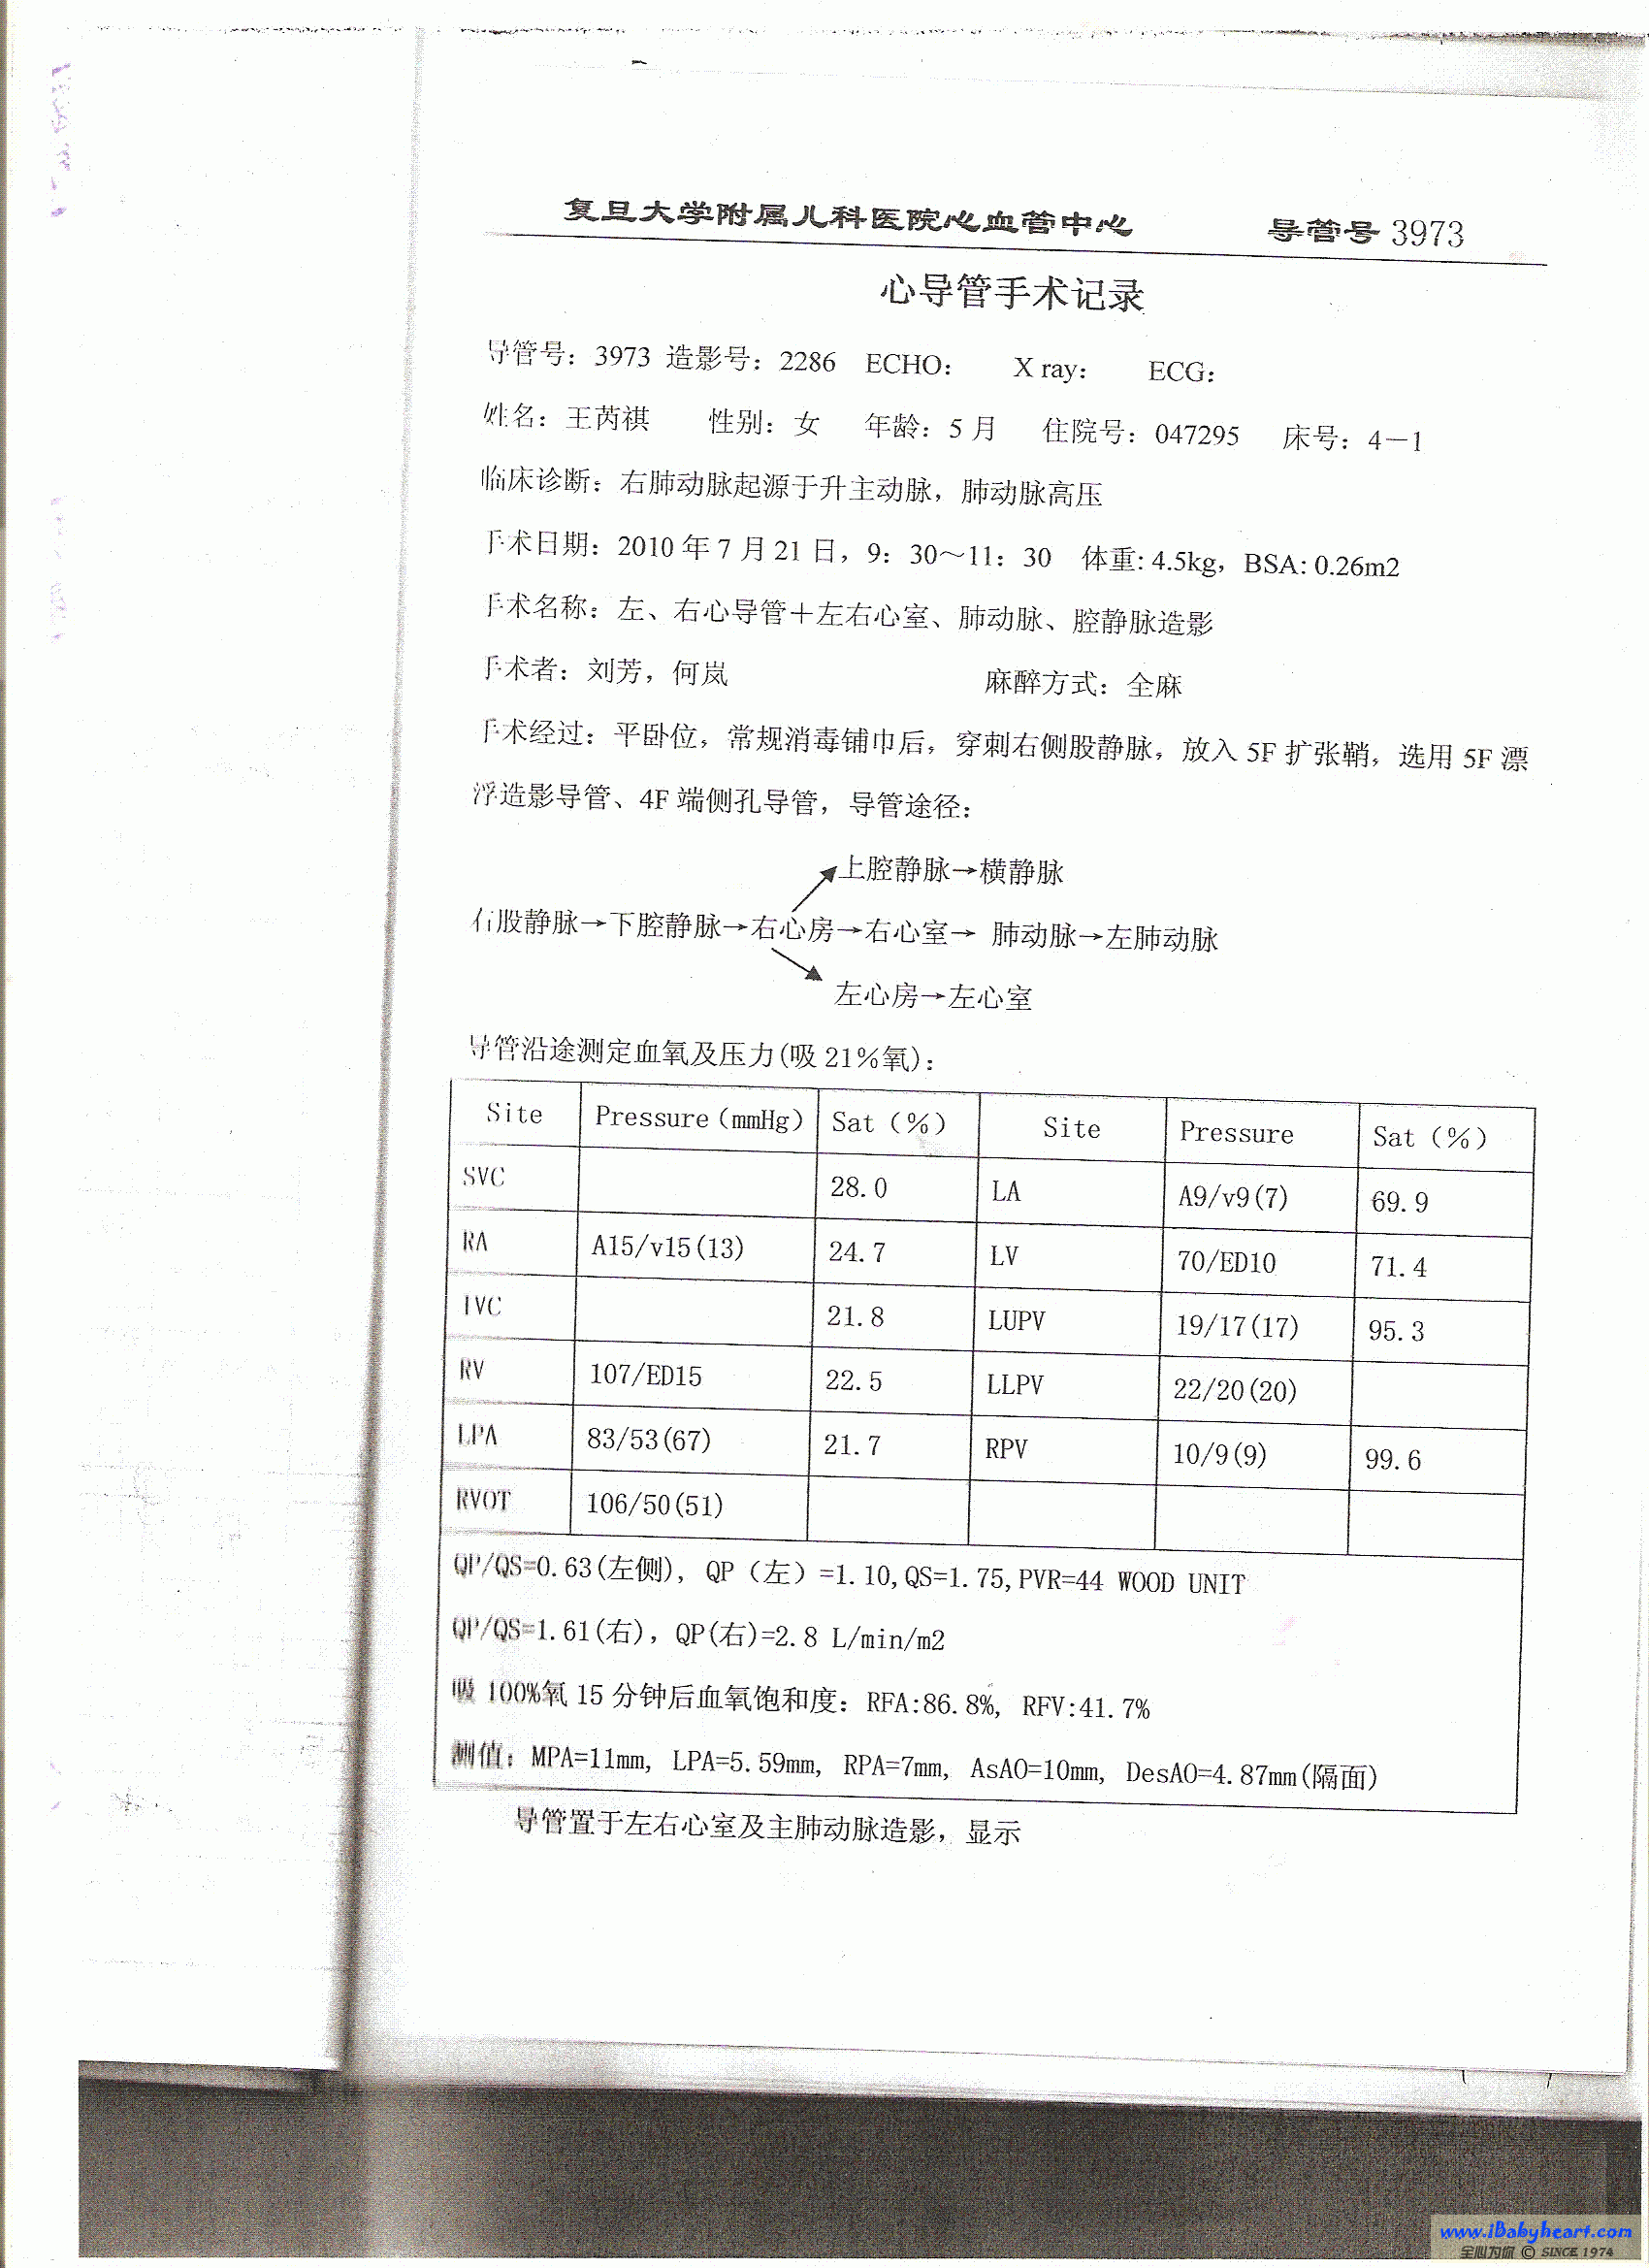 复旦大学附属儿科医院心血管中心 导管号 3973
心导管手术记录
导管号：3973 造影号：2286 ECHO： X ray： ECG：
姓名：王芮祺 性别：女 年龄：5 月 住院号：047295 床号：4－1
临床诊断：右肺动脉起源于升主动脉，肺动脉高压
手术日期：2010 年 7 月 21 日，9：30～11：30 体重: 4.5kg，BSA: 0.26m2
手术名称：左、右心导管＋左右心室、肺动脉、腔静脉造影
手术者：刘芳，何岚 麻醉方式：全麻
手术经过：平卧位，常规消毒铺巾后，穿刺右侧股静脉，放入 5F 扩张鞘，选用 5F 漂
浮造影导管、4F 端侧孔导管，导管途径：
上腔静脉→横静脉
右股静脉→下腔静脉→右心房→右心室→ 肺动脉→左肺动脉
左心房→左心室
导管沿途测定血氧及压力(吸 21％氧)：
Site Pressure（mmHg） Sat（％） Site Pressure Sat（％）
SVC 28.0 LA A9/v9(7) 69.9
RA A15/v15(13) 24.7 LV 70/ED10 71.4
IVC 21.8 LUPV 19/17(17) 95.3
RV 107/ED15 22.5 LLPV 22/20(20)
LPA 83/53(67) 21.7 RPV 10/9(9) 99.6
RVOT 106/50(51)
QP/QS=0.63(左侧), QP（左）=1.10,QS=1.75,PVR=44 WOOD UNIT
QP/QS=1.61(右), QP(右)=2.8 L/min/m2
吸 100%氧 15 分钟后血氧饱和度：RFA:86.8%, RFV:41.7%
测值：MPA=11mm, LPA=5.59mm, RPA=7mm, AsAO=10mm, DesAO=4.87mm(隔面)
导管置于左右心室及主肺动脉造影，显示
www.iBabyheart.com
全心为你 © SINCE 1974